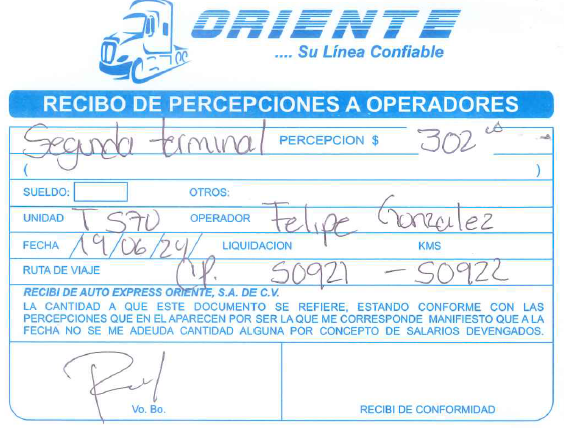 ORIENTE
.... Su Línea Confiable
RECIBO DE PERCEPCIONES A OPERADORES
Segunda terminal PERCEPCION $ 302
( )
SUELDO: OTROS:
UNIDAD T S70 OPERADOR Felipe Gonzalez
FECHA 19/06/24/ LIQUIDACION KMS
RUTA DE VIAJE C.P. S0921 - S0922
RECIBI DE AUTO EXPRESS ORIENTE, S.A. DE C.V.
LA CANTIDAD A QUE ESTE DOCUMENTO SE REFIERE, ESTANDO CONFORME CON LAS
PERCEPCIONES QUE EN EL APARECEN POR SER LA QUE ME CORRESPONDE MANIFIESTO QUE A LA
FECHA NO SE ME ADEUDA CANTIDAD ALGUNA POR CONCEPTO DE SALARIOS DEVENGADOS.
Vo. Bo. RECIBI DE CONFORMIDAD